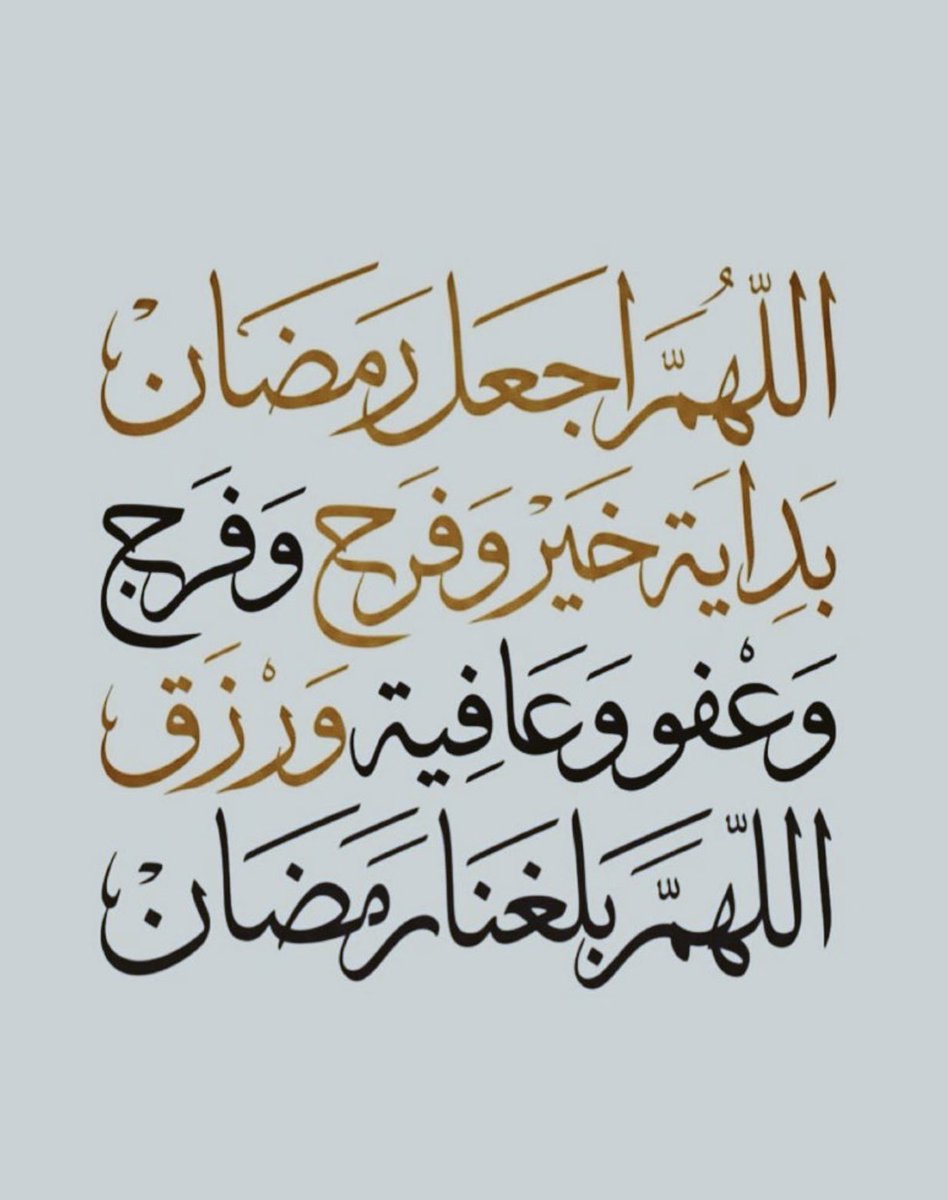 اللّهُمَّ اجعل رَمَضَانْ
بَدِايَة خَيَرْ وَفَرَح وَفَرَج
وَعْفو وَعَافِية وَرْزَق
اللّهمَّ بَلغنَا رمَضَانْ